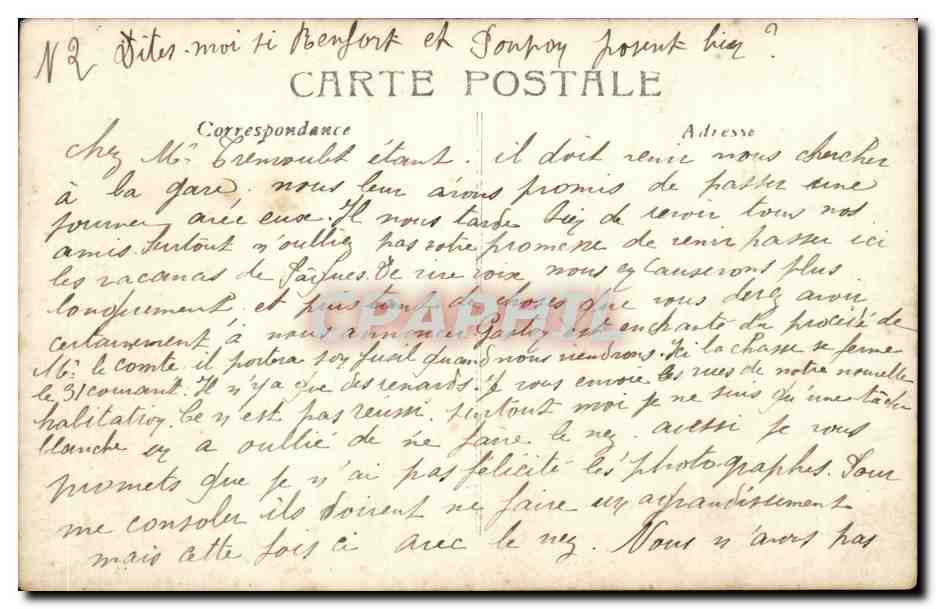 N 2 Dites-moi si Renfort et Poupoy posent bien ?
CARTE POSTALE
Correspondance
Adresse
chez Mr. Tremoulet étant. il doit venir nous chercher
à la gare. nous leur avons promis de passer une
journée avec eux. Il nous tarde bien de revoir tous nos
amis. Surtout n'oubliez pas votre promesse de venir passer ici
les vacances de Pâques. De vive voix nous en causerons plus
longuement et puis tant de choses que vous devez avoir
certainement à nous annoncer Gaston est enchanté du procédé de
Mr. le comte. il portera son fusil quand nous viendrons. Ici la chasse se ferme
le 31 courant. Il n'y a que des renards. Je vous envoie les vues de notre nouvelle
habitation. Ce n'est pas réussi. surtout moi je ne suis qu'une tache
blanche on a oublié de me faire le nez. aussi je vous
promets que je n'ai pas félicité les photographes. Pour
me consoler ils doivent me faire un agrandissement
mais cette fois ci avec le nez. Nous n'avons pas